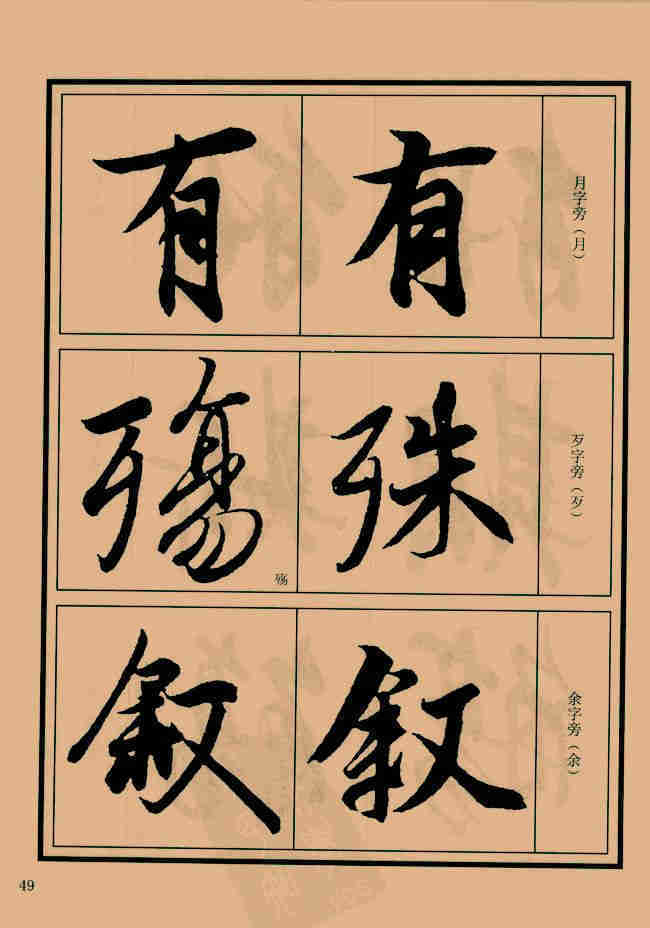 月字旁（月）
有
有
歹字旁（歹）
殊
殤
殇
余字旁（余）
叙
叙
49